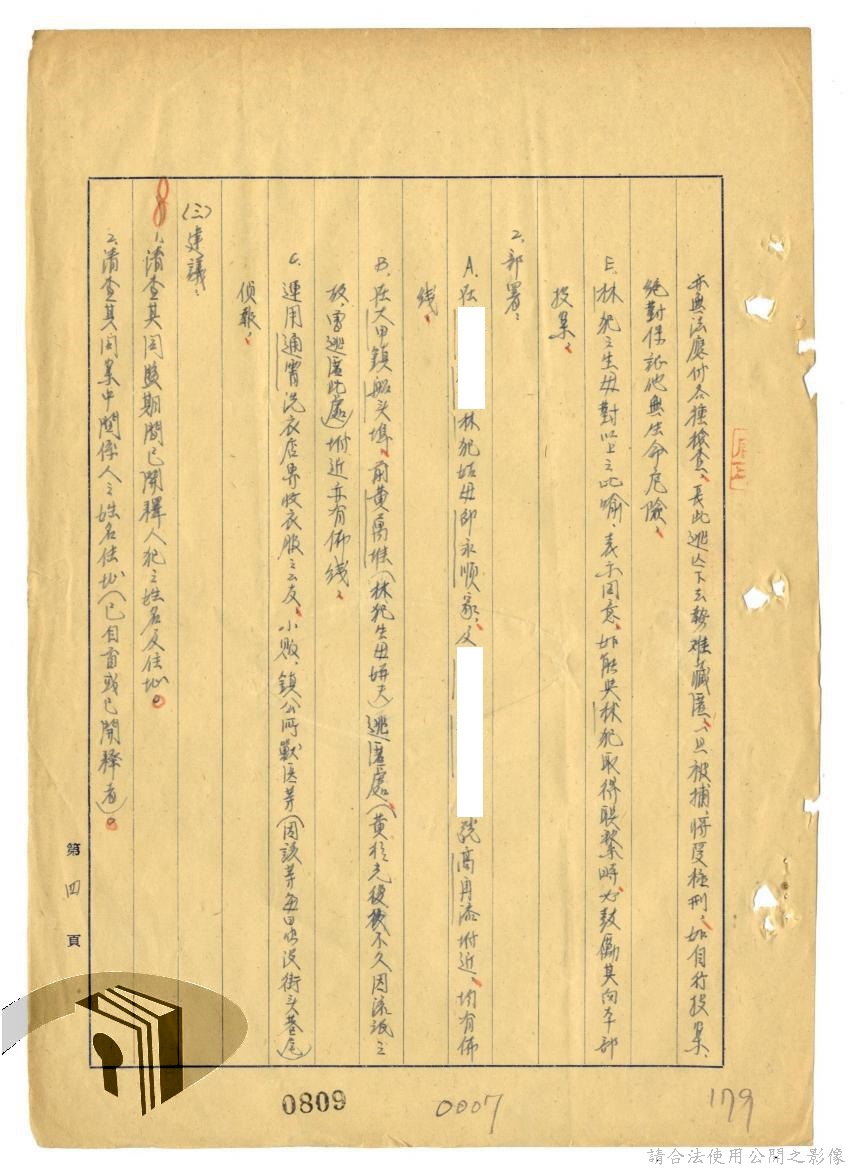 亦無法應付各種檢查、長此逃亡下去勢难藏匿、一旦被捕將受極刑、如自行投案、
絕對保証他無生命危險、
E. 林犯之生母對以上之比喻、表示同意、如能與林犯取得联繫時必鼓勵其向本部
投案、
2. 部署：
A. 在 林犯姑母邱永順家、又 號高再添附近、均有佈
线、
B. 在大甲鎮船头埔、前黃萬堆（林犯生母姘夫）逃匿處（黃於光復後不久因流氓之
故、曾逃匿此處）附近亦有佈线、
C. 運用通霄洗衣店界收衣服之云友、小販、鎮公所獸医等（因該等每日出没街头巷尾）
偵報、
(三) 建議：
1. 清查其同監期間已開釋人犯之姓名及住址。
2. 清查其同案中関係人之姓名住址（已自首或已開釋者）。
第四頁
0809
0007
179
請合法使用公開之影像